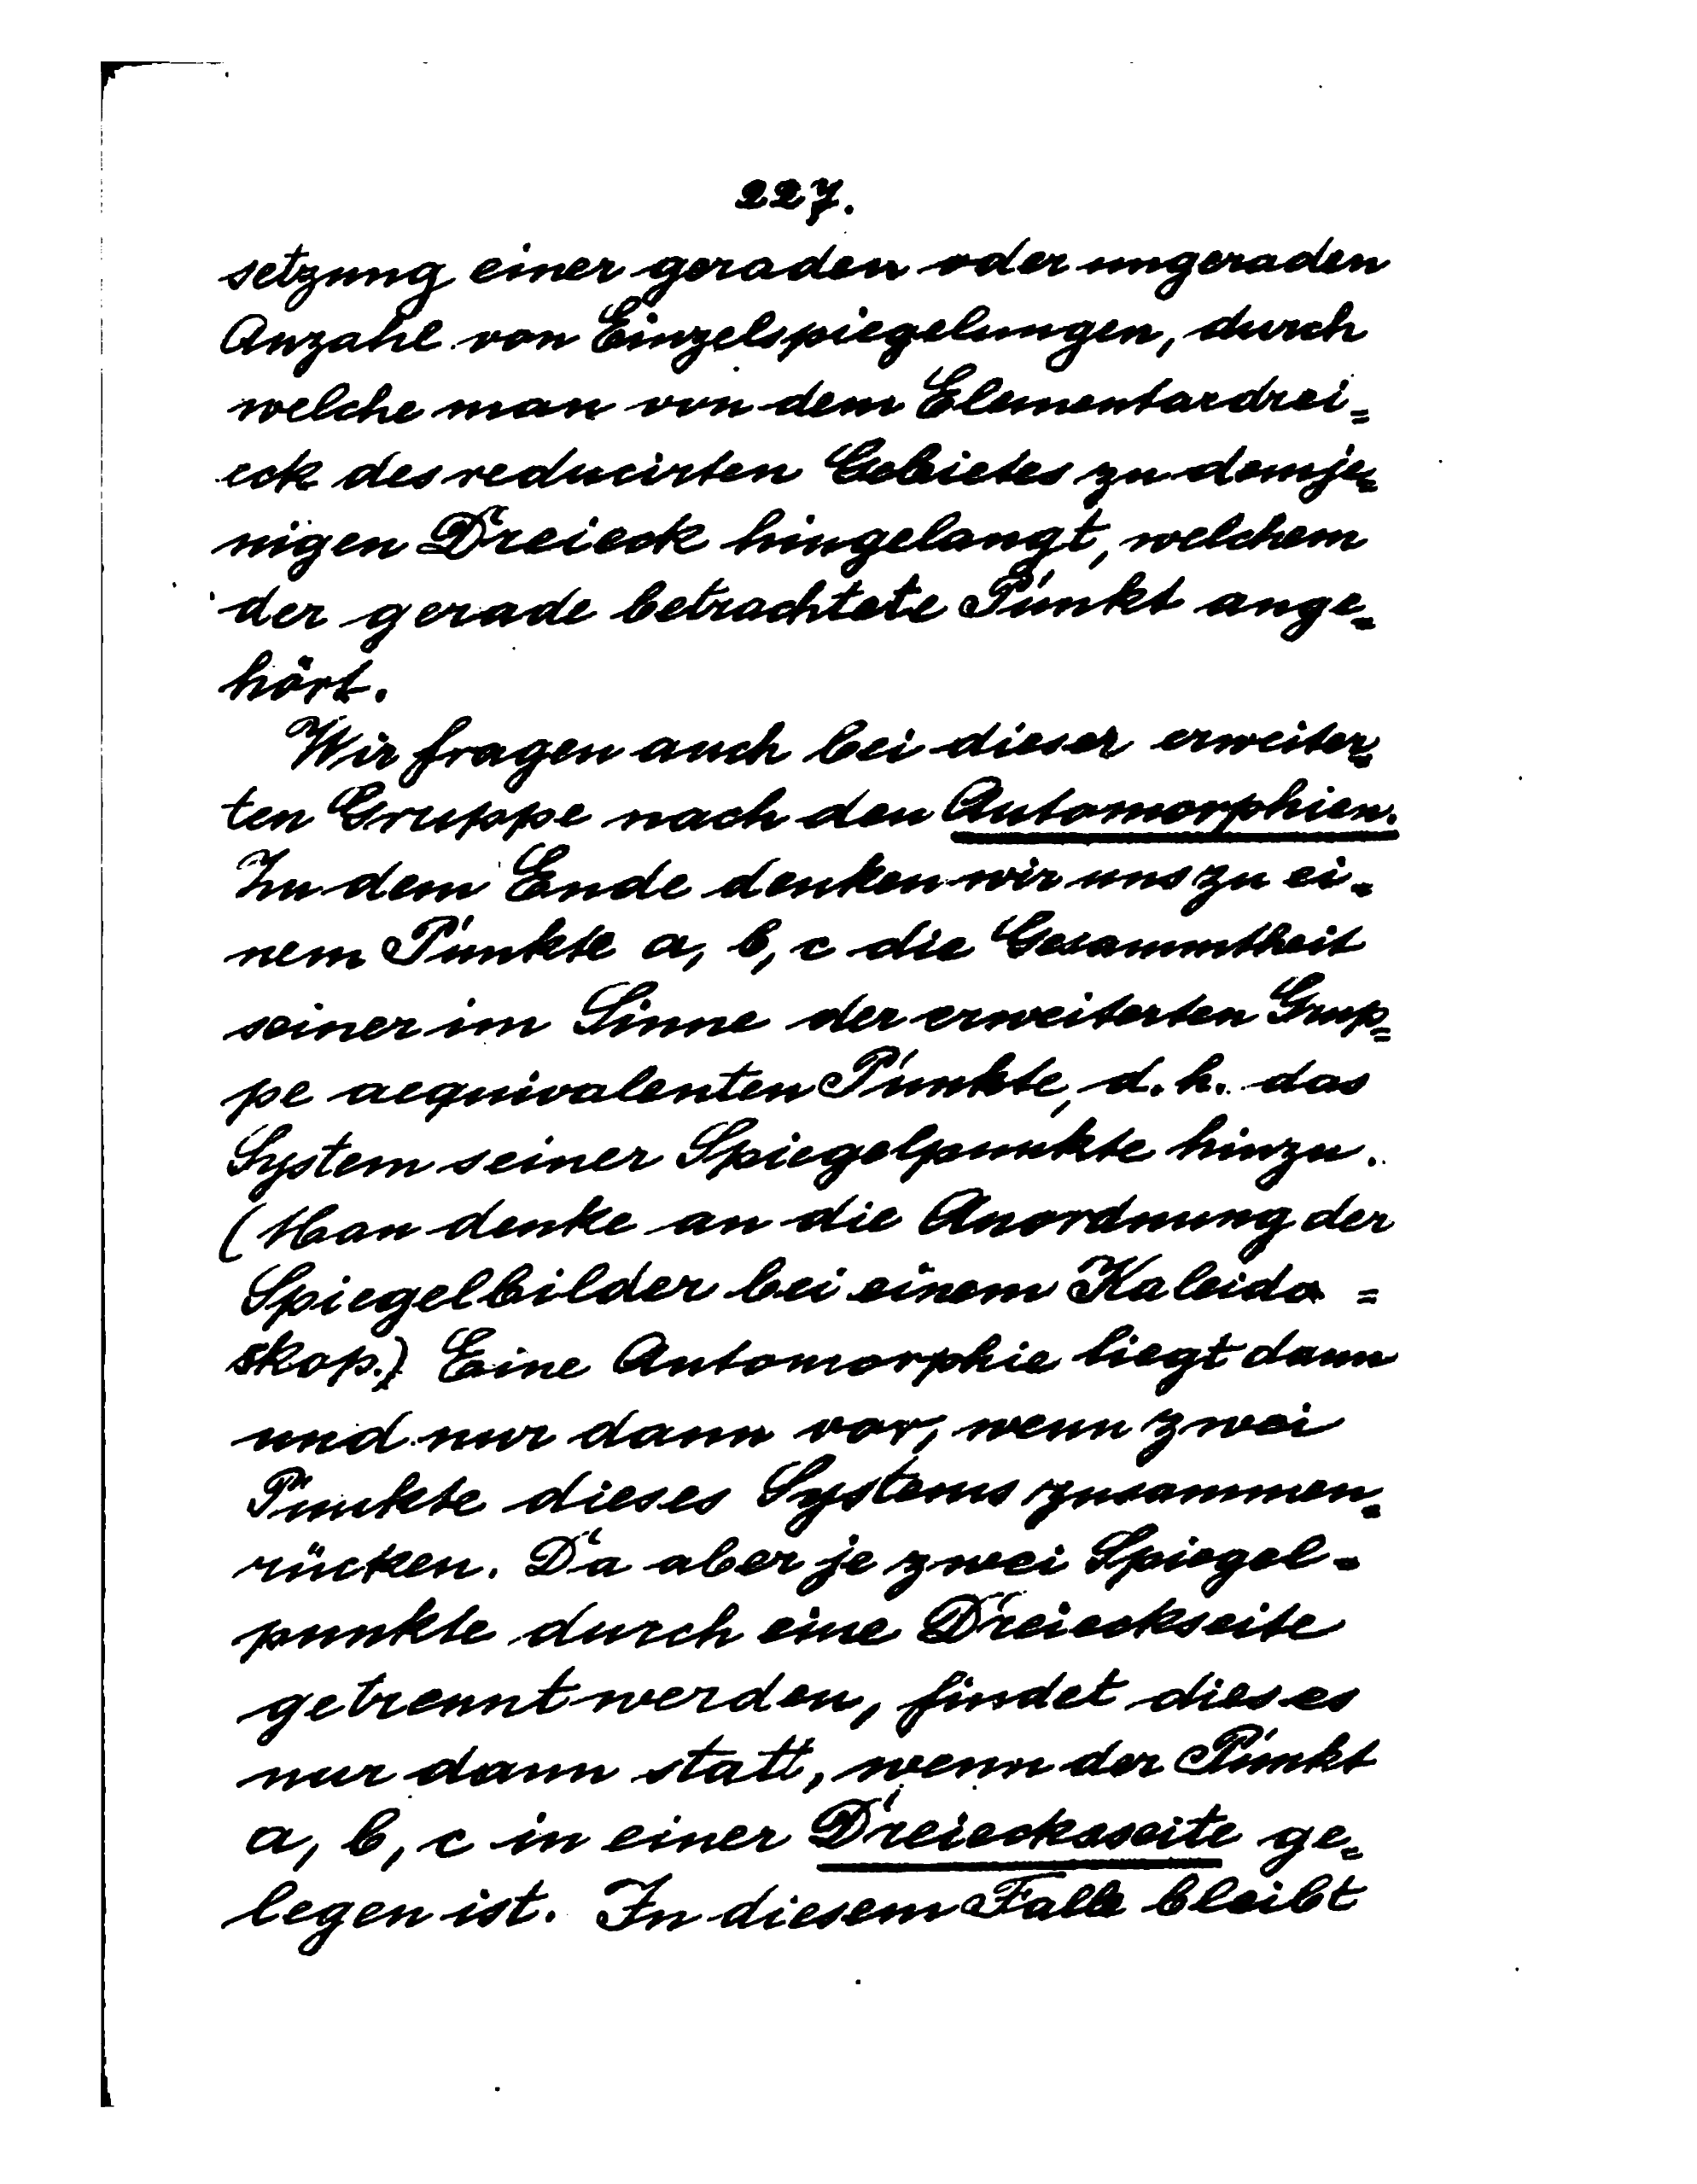 227.
setzung einer geraden oder ungeraden
Anzahl von Einzelspiegelungen, durch
welche man von dem Elementardrei=
eck des reducirten Gebietes zu demje=
nigen Dreieck hingelangt, welchem
der gerade betrachtete Punkt ange=
hört.
Wir fragen auch bei dieser erweiter=
ten Gruppe nach den Automorphien.
Zu dem Ende denken wir uns zu ei=
nem Punkte a, b, c die Gesammtheit
seiner im Sinne der erweiterten Grup=
pe aequivalenten Punkte, d. h. das
System seiner Spiegelpunkte hinzu.
(Man denke an die Anordnung der
Spiegelbilder bei einem Kaleido=
skop.) Eine Automorphie liegt dann
und nur dann vor, wenn zwei
Punkte dieses Systems zusammen=
rücken. Da aber je zwei Spiegel=
punkte durch eine Dreieckseite
getrennt werden, findet dieses
nur dann statt, wenn der Punkt
a, b, c in einer Dreiecksseite ge=
legen ist. In diesem Falle bleibt